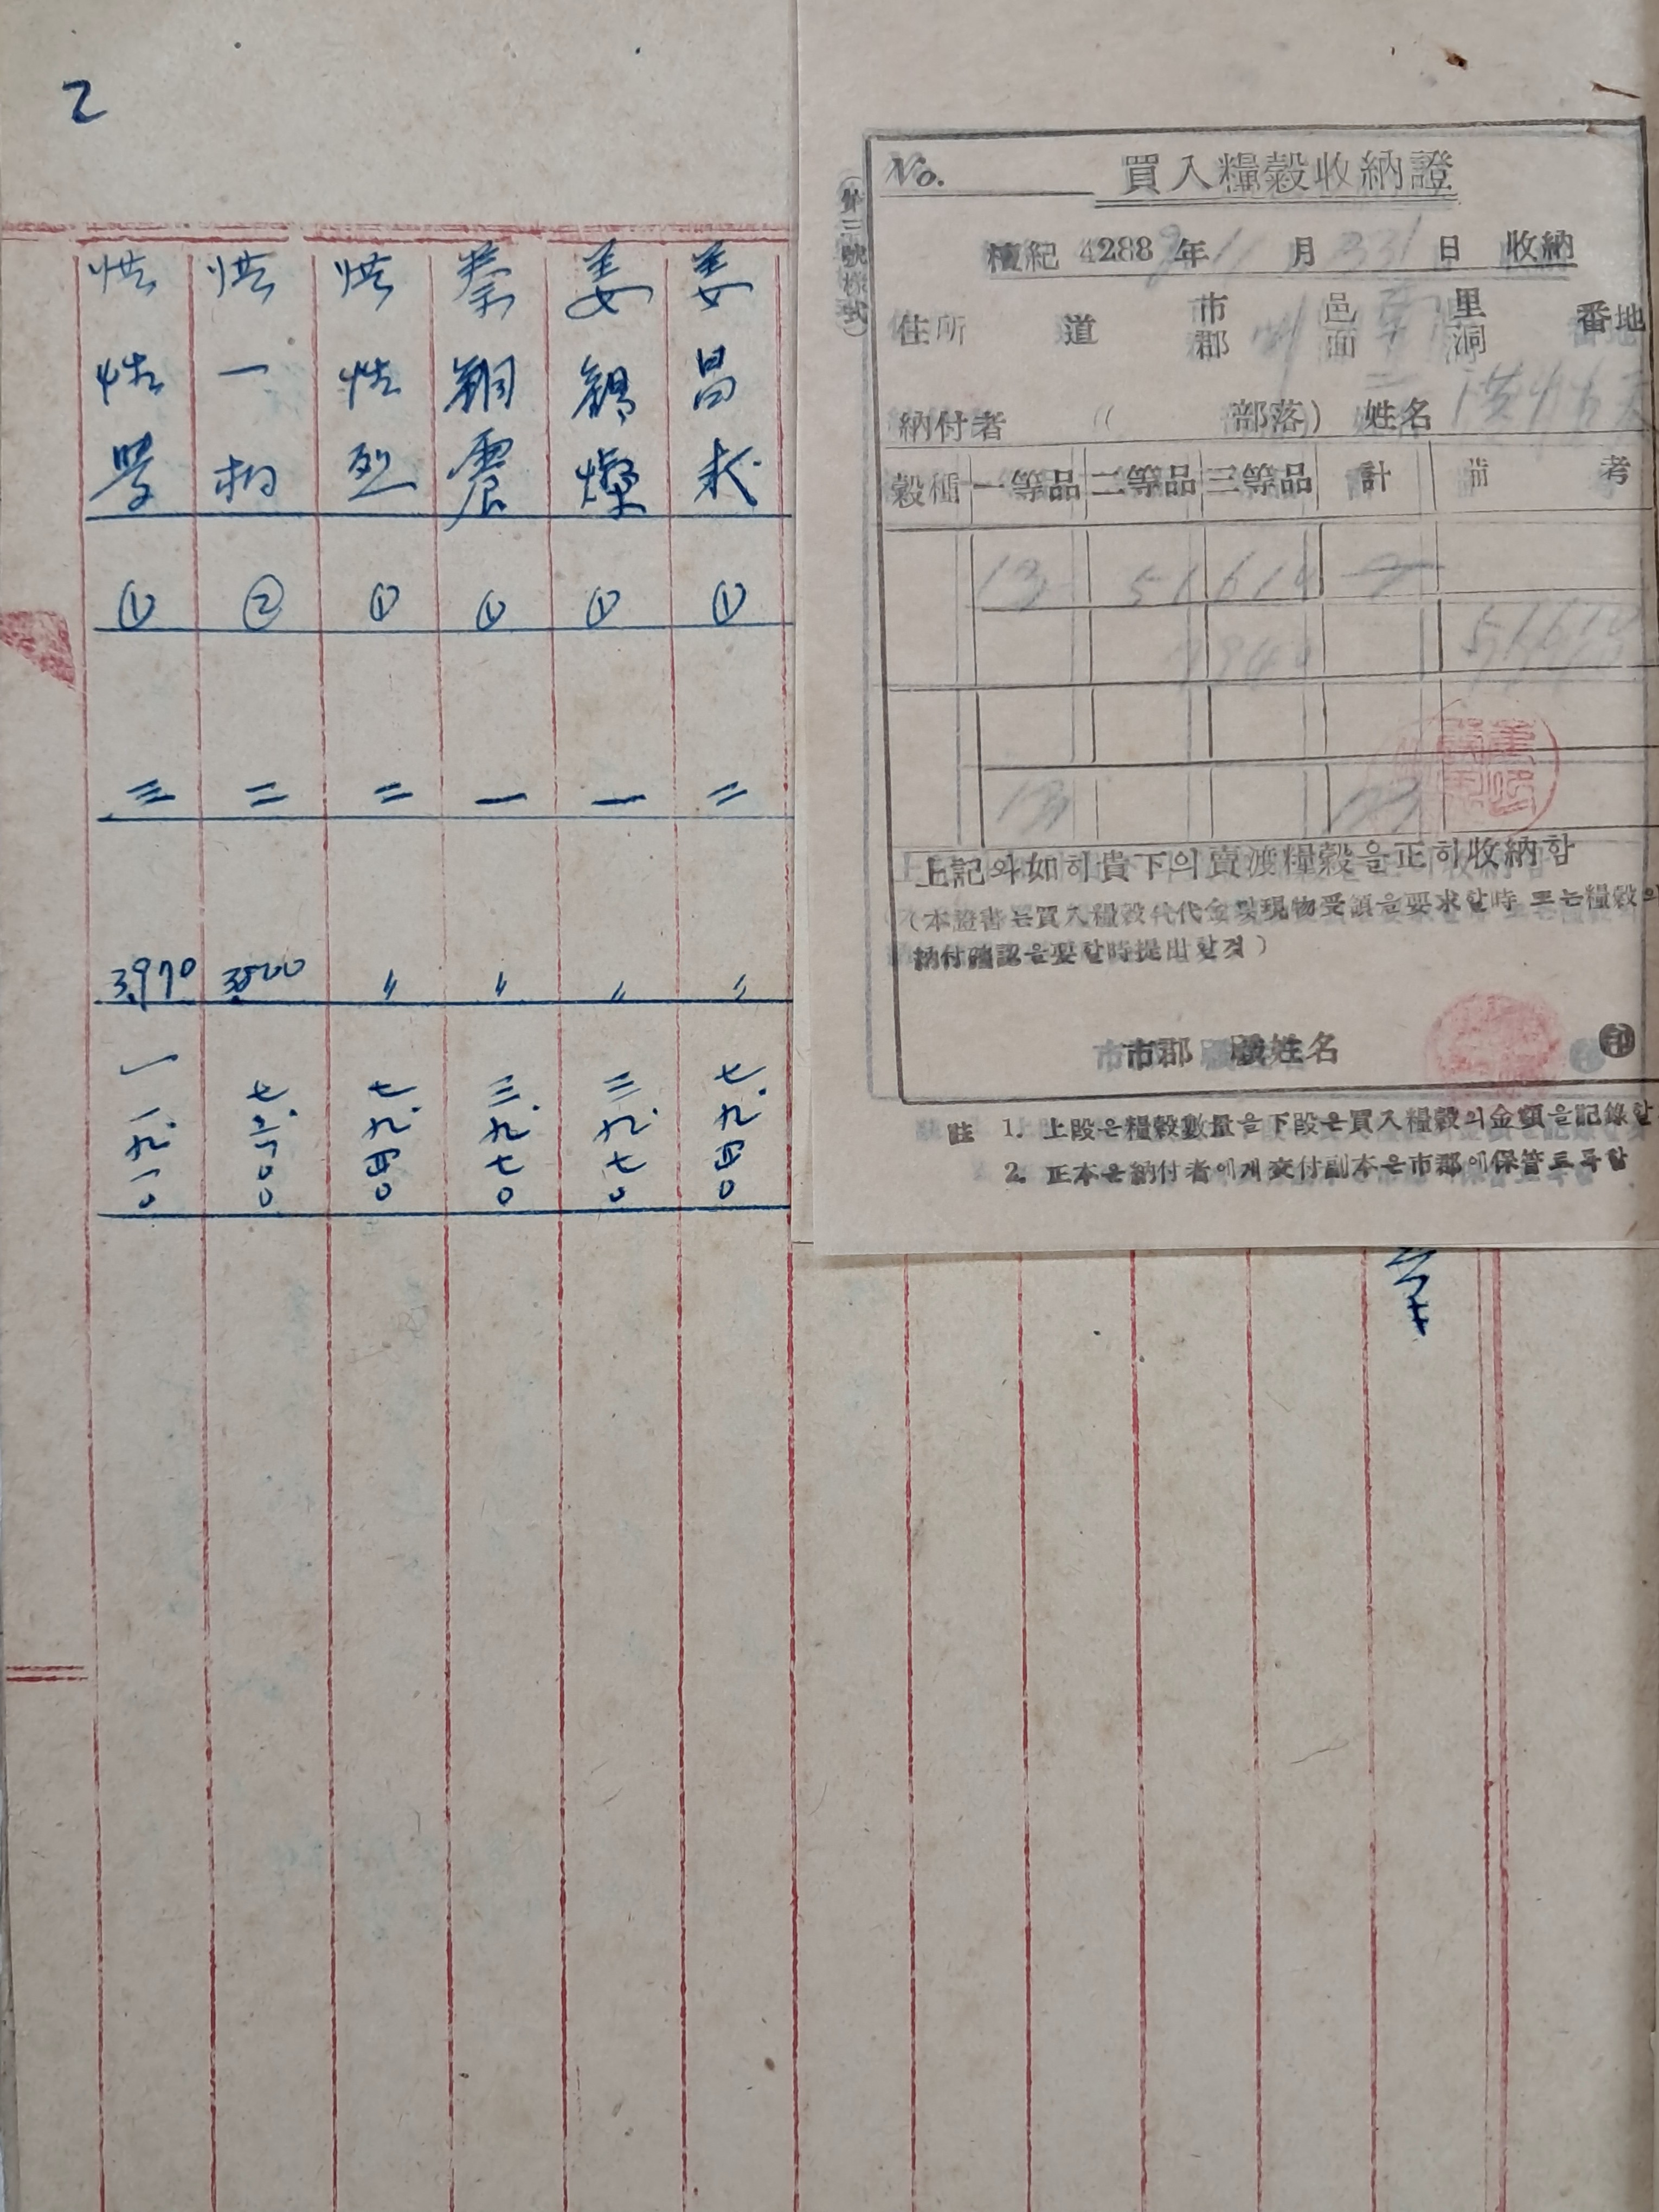 2
姜昌求 ① 二 〃 七.九四〇
姜錫燦 ① 一 〃 三.九七〇
秦 震 ① 一 〃 三.九七〇
洪性烈 ① 二 〃 七.九四〇
洪一杓 ② 二 3,800 七.六〇〇
洪性學 ① 三 3,970 一一.九一〇
No.
買入糧穀收納證
檀紀 4288年 11月 日 收納
住所 道 市郡 邑面 里洞 番地
納付者 ( 部落) 姓名 洪
穀種 一等品 二等品 三等品 計 備考
13 51614
13
上記와如히貴下의賣渡糧穀을正히收納함
(本證書는買入糧穀代代金및現物受領을要求할時 또는糧穀의
納付確認을要할時提出할것)
市郡 職姓名 印
註 1. 上段은糧穀數量을下段은買入糧穀의金額을記錄할
2. 正本은納付者에게交付副本은市郡에保管토록할